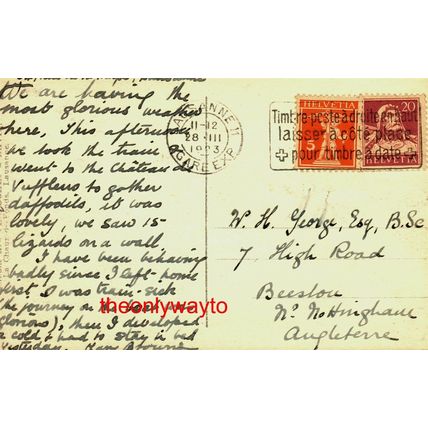 We are having the
most glorious weather
here, This afternoon
we took the train
went to the Château de
Vufflens to gather
daffodils, it was
lovely, we saw 15
lizards on a wall.
I have been behaving
badly since I left home
first I was train-sick
(the journey on the
glorious), then I developed
a cold & had to stay in bed
yesterday.
Lausanne
LAUSANNE 1
11-12
28 III
1923
GARE EXP.
Timbre-poste à droite en haut
laisser à côté place
pour timbre à date
HELVETIA
5
20
HELVETIA
W. H. George, Esq, B.Sc
7 High Road
Beeston
Nr Nottingham
Angleterre
theonlywayto